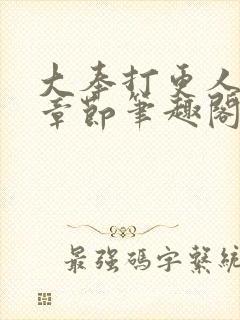 大奉打更人
章節筆趣閣
最強碼字繫統